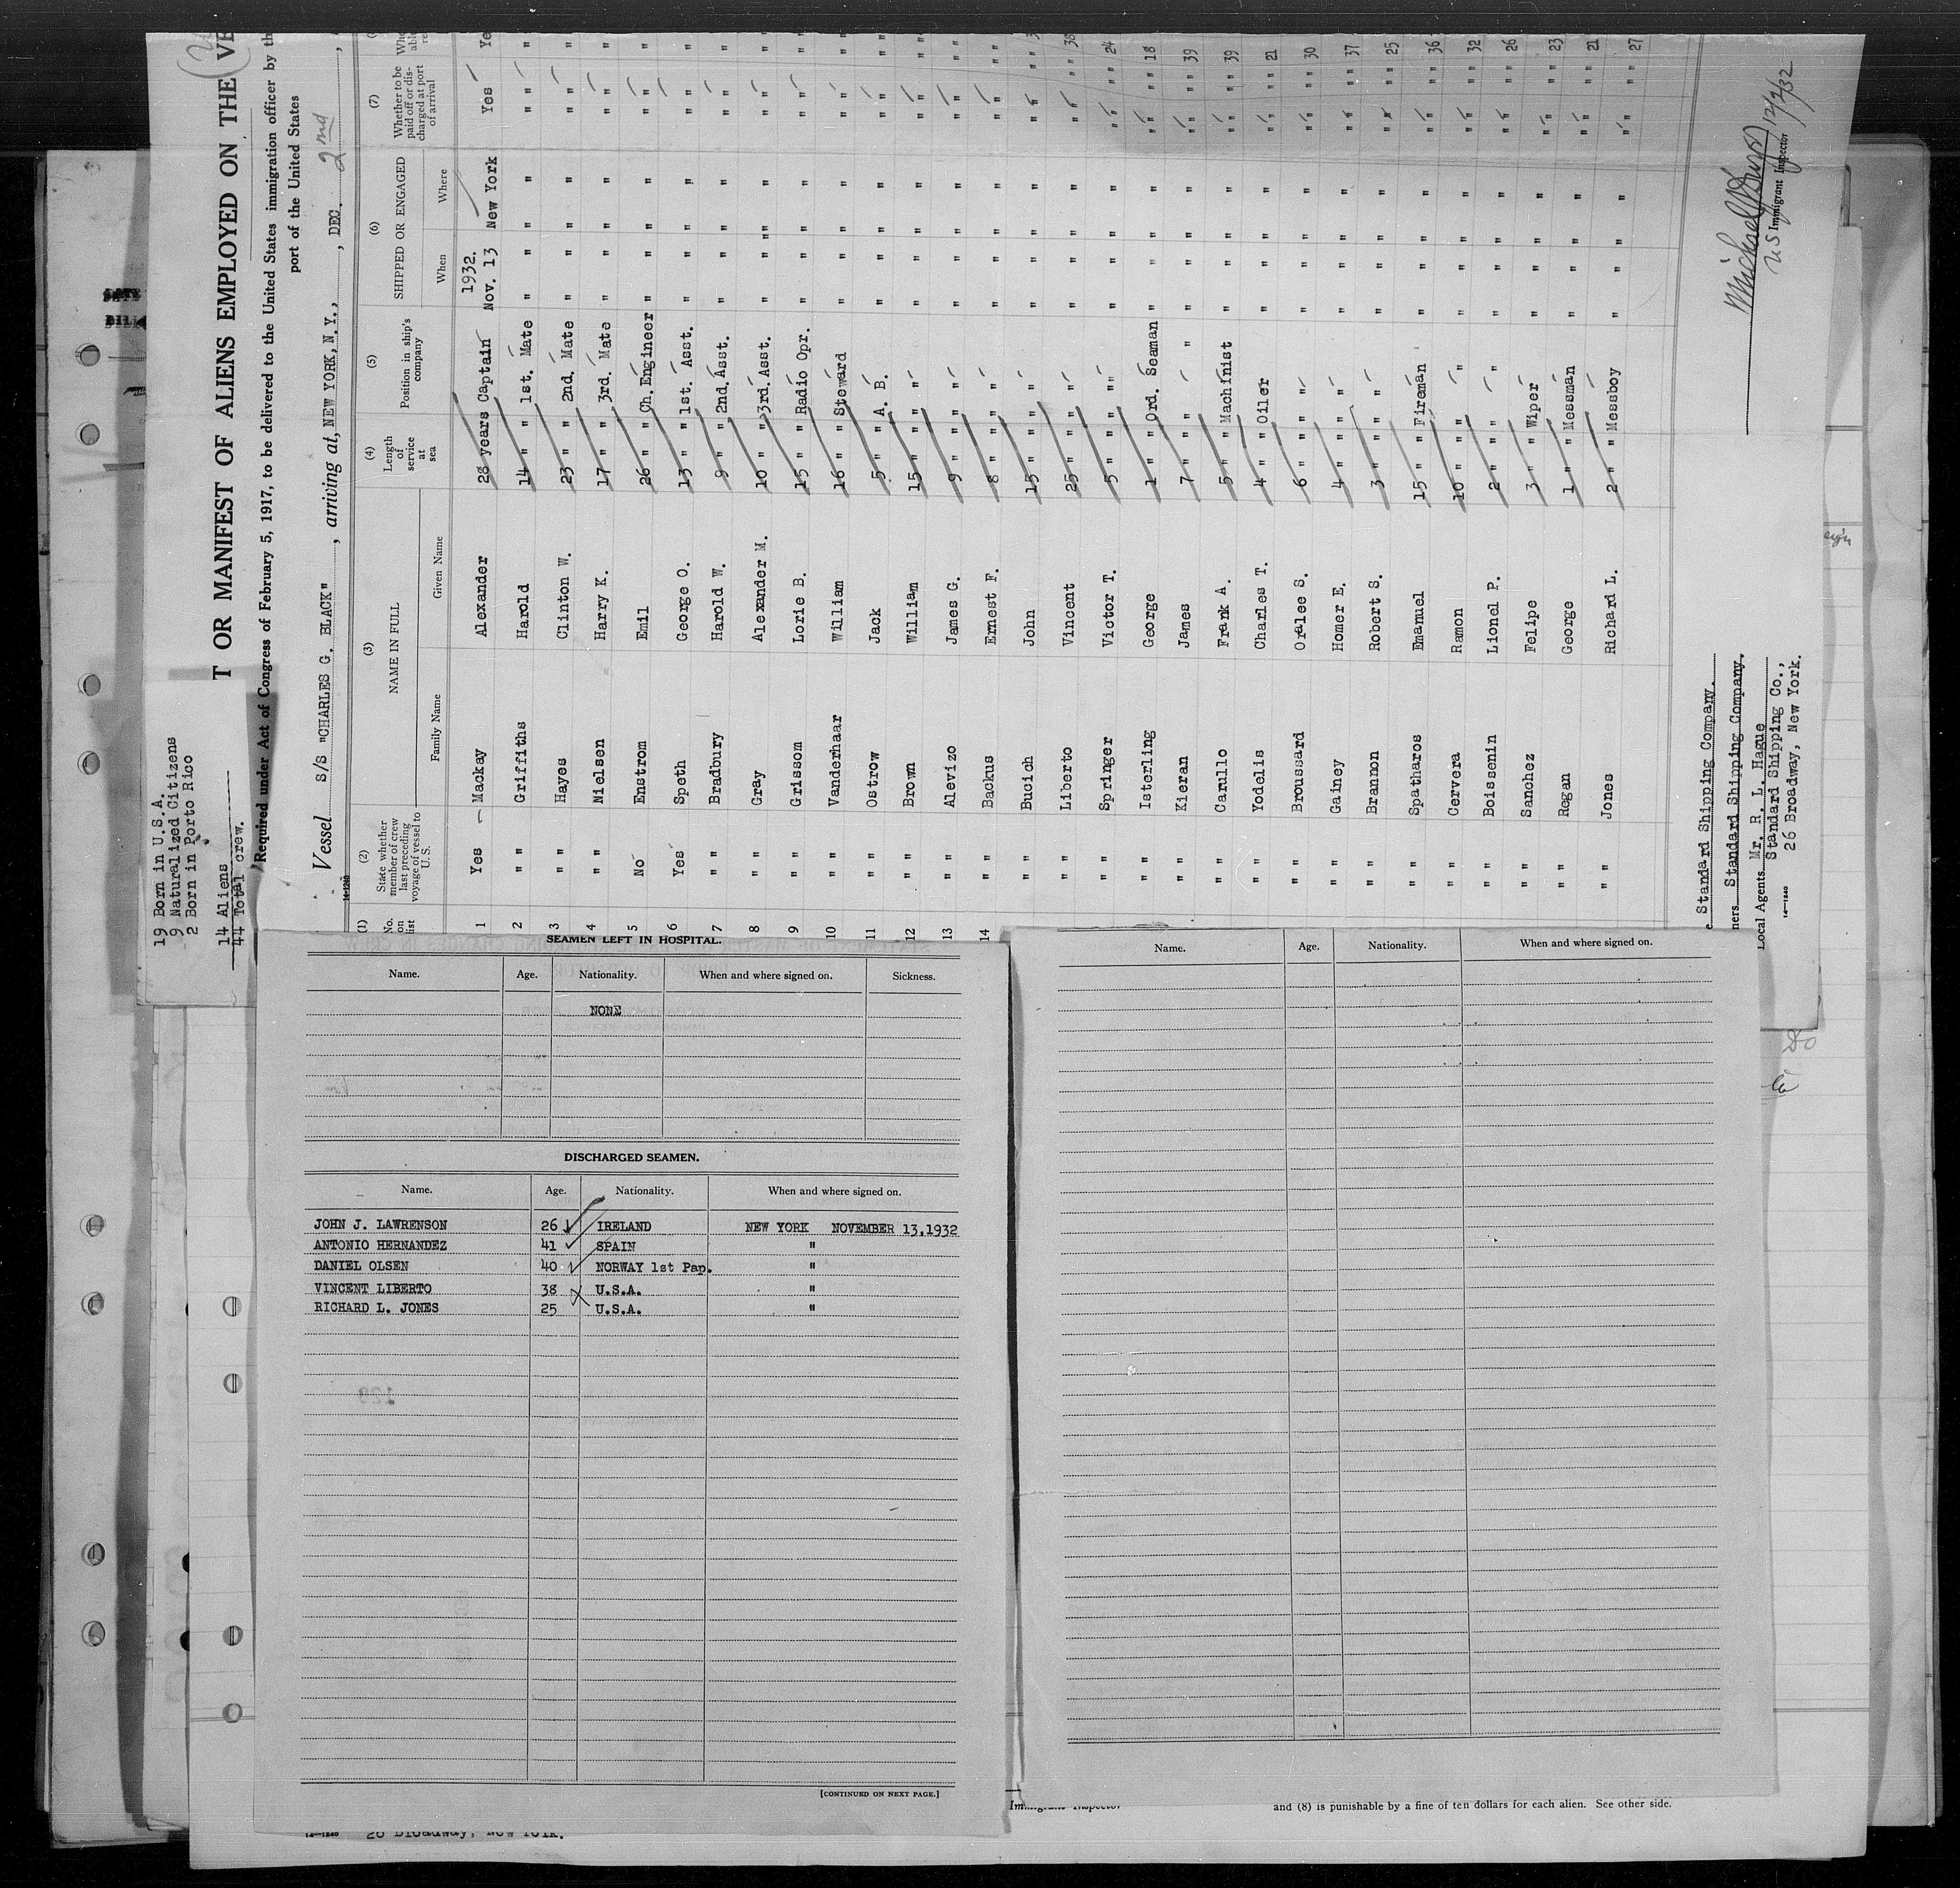 19 Born in U.S.A.
9 Naturalized Citizens
2 Born in Porto Rico
14 Aliens
44 Total crew.
T OR MANIFEST OF ALIENS EMPLOYED ON THE VE
Required under Act of Congress of February 5, 1917, to be delivered to the United States immigration officer by th
port of the United States
Vessel S/S "CHARLES G. BLACK", arriving at, NEW YORK, N.Y., DEC. 2nd,
14-1240
(1) (2) (3) (4) (5) (6) (7)
No. on list State whether member of crew last preceding voyage of vessel to U.S. NAME IN FULL Family Name Given Name Length of service at sea Position in ship's company SHIPPED OR ENGAGED When Where Whether to be paid off or discharged at port of arrival
1932.
1 Yes Mackay Alexander 28 years Captain Nov. 13 New York Yes Ye
2 " " Griffiths Harold 14 " " 1st. Mate " " " " " " "
3 " " Hayes Clinton W. 23 " " 2nd. Mate " " " " " " "
4 " " Nielsen Harry K. 17 " " 3rd. Mate " " " " " " "
5 No Enstrom Emil 26 " " Ch. Engineer " " " " " " "
6 Yes Speth George O. 13 " " 1st. Asst. " " " " " " "
7 " " Bradbury Harold W. 9 " " 2nd. Asst. " " " " " " "
8 " " Gray Alexander M. 10 " " 3rd. Asst. " " "" " " " "
9 " " Grissom Lorie B. 15 " " Radio Opr. " " " " " " "
10 " " Vanderhaar William 16 " " Steward " " " " " " "
11 " " Ostrow Jack 5 " " A. B. " " " " " " "
12 " " Brown William 15 " " " " " " " " " " "
13 " " Alevizo James G. 9 " " " " " " " " " " "
14 " " Backus Ernest F. 8 " " " " " " " " " " "
" " Bucich John 15 " " " " " " " " " " " 3
" " Liberto Vincent 25 " " " " " " " " " " " 38
" " Springer Victor T. 5 " " " " " " " " " " " 24
" " Isterling George 1 " " Ord. Seaman " " " " " " " " 18
" " Kieran James 7 " " " " " " " " " " " " 39
" " Carullo Frank A. 5 " " Machinist " " " " " " " " 39
" " Yodelis Charles T. 4 " " Oiler " " " " " " " " 21
" " Broussard Oralee S. 6 " " " " " " " " " " " 30
" " Gainey Homer E. 4 " " " " " " " " " " " 37
" " Brannon Robert S. 3 " " " " " " " " " " " 25
" " Spatharos Emanuel 15 " " Fireman " " " " " " " " 36
" " Cervera Ramon 10 " " " " " " " " " " " 32
" " Boissenin Lionel P. 2 " " " " " " " " " " " 26
" " Sanchez Felipe 3 " " Wiper " " " " " " " " 23
" " Regan George 1 " " Messman " " " " " " " " 21
" " Jones Richard L. 2 " " Messboy " " " " " " " 27
e Standard Shipping Company.
ners Standard Shipping Company.
Local Agents Mr. R. L. Hague
Standard Shipping Co.,
26 Broadway, New York.
14-1240
12/2/32
U S Immigrant Inspector
SEAMEN LEFT IN HOSPITAL.
Name. Age. Nationality. When and where signed on. Sickness.
NONE
DISCHARGED SEAMEN.
Name. Age. Nationality. When and where signed on.
JOHN J. LAWRENSON 26 IRELAND NEW YORK NOVEMBER 13,1932
ANTONIO HERNANDEZ 41 SPAIN "
DANIEL OLSEN 40 NORWAY 1st Pap. "
VINCENT LIBERTO 38 U.S.A. "
RICHARD L. JONES 25 U.S.A. "
[CONTINUED ON NEXT PAGE.]
Name. Age. Nationality. When and where signed on.
Immigrant Inspector
and (8) is punishable by a fine of ten dollars for each alien. See other side.
14-1240 26 Broadway, New York.